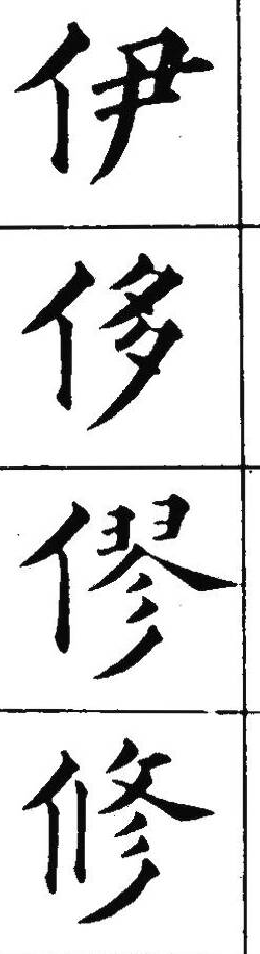 伊
侈
僇
修